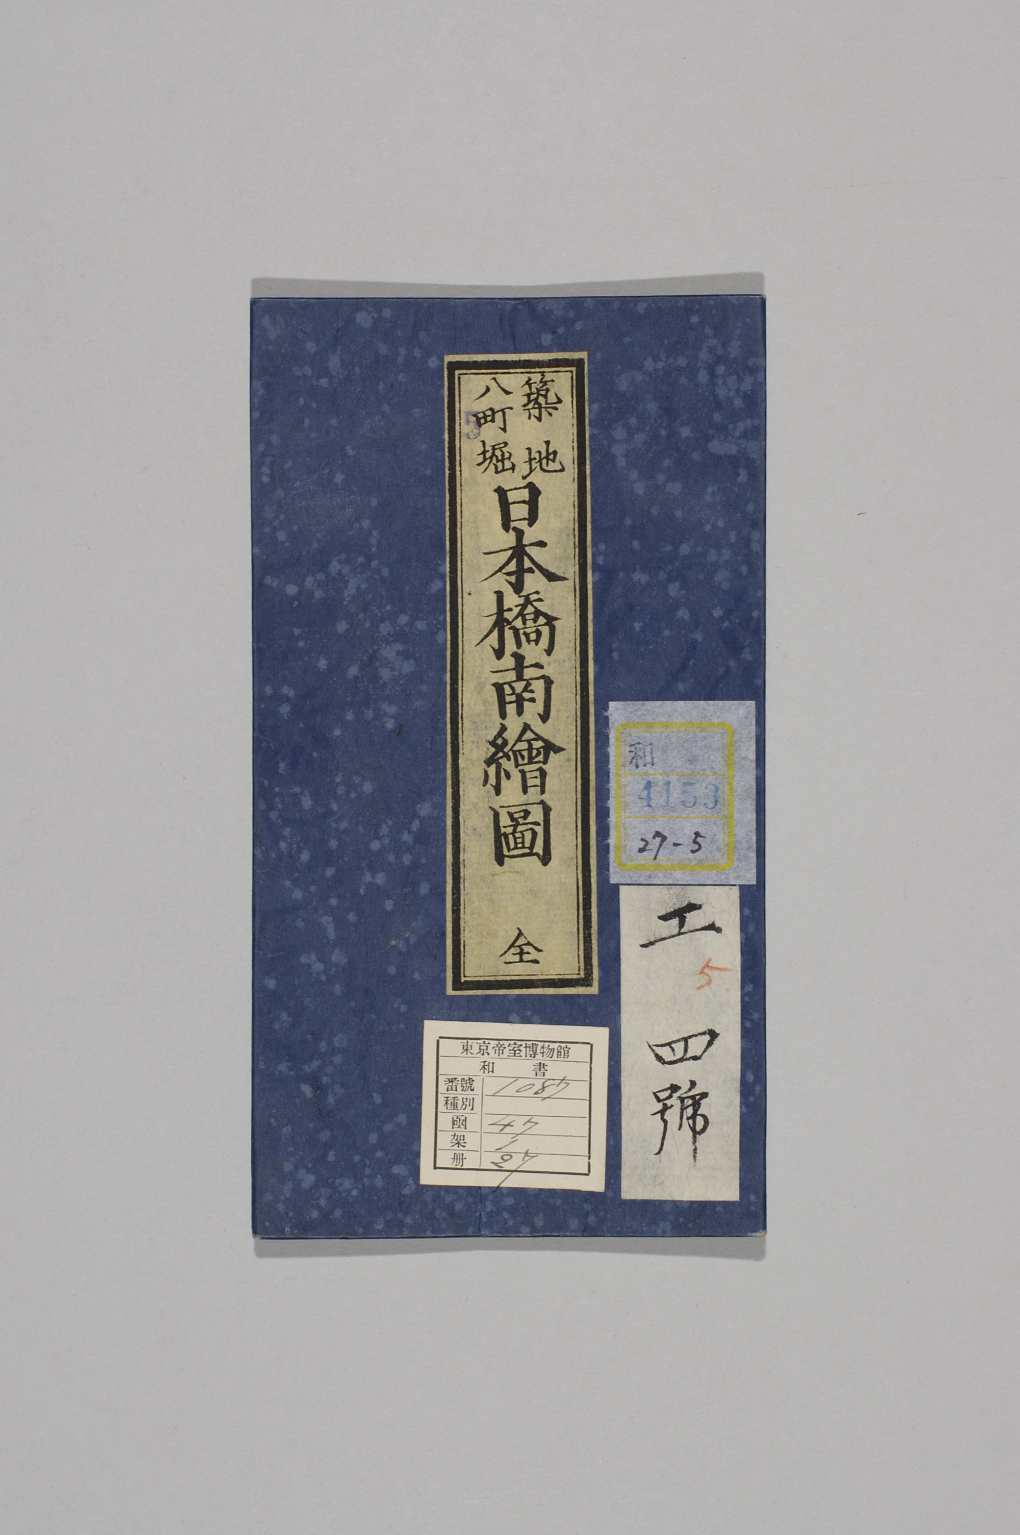 築地
八町堀
日本橋南繪圖
全
5
和
4153
27-5
工
5
四號
東京帝室博物館
和書
番號 1087
種別
凾 47
架 1
册